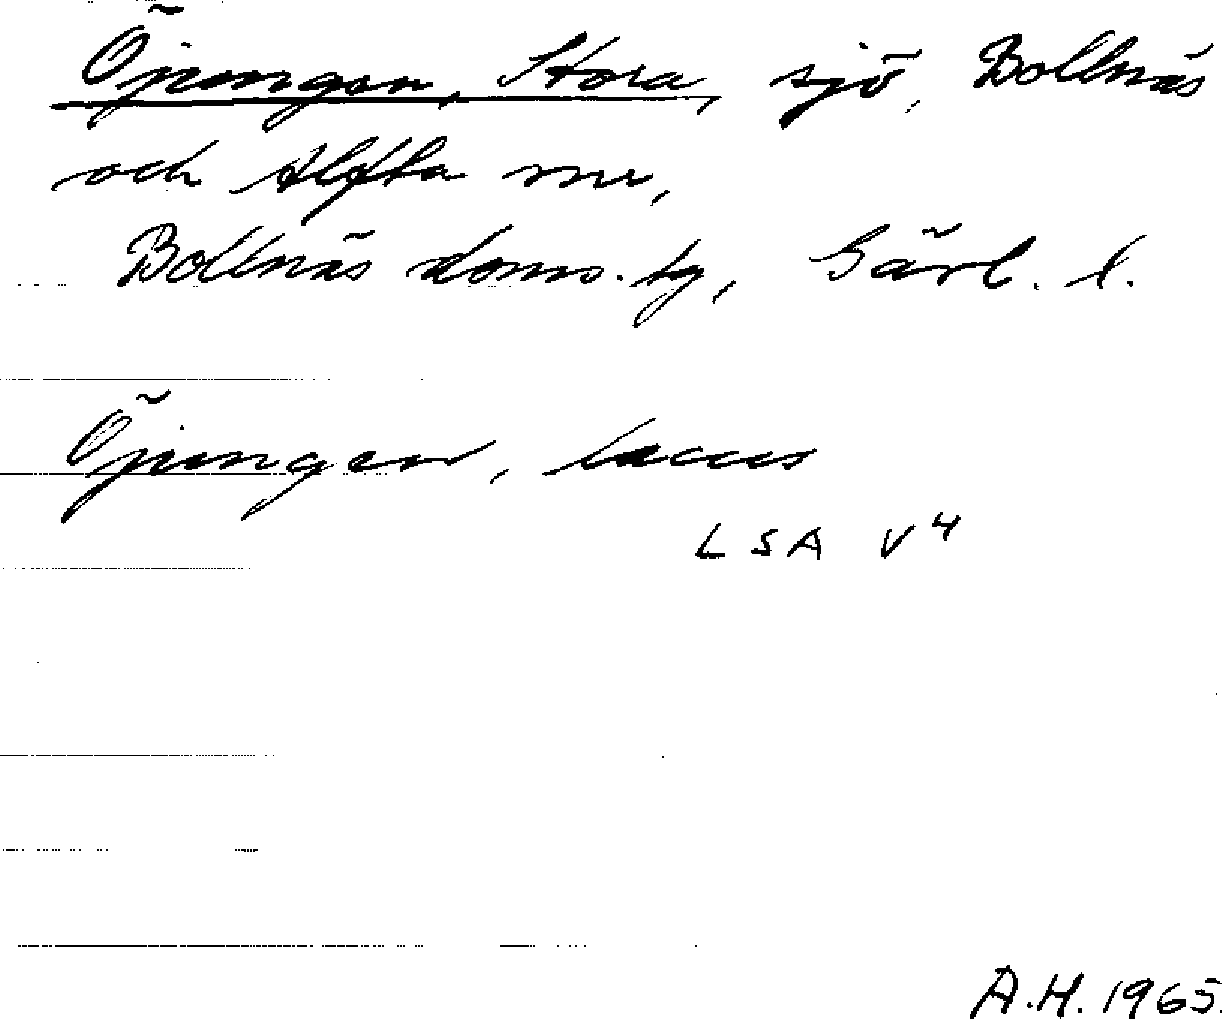 Öjungen, Stora, sjö, Bollnäs
och Alfta snr,
Bollnäs doms. tg, Gävl. l.
Öjungen, lacus
LSA V4
A.H. 1965.